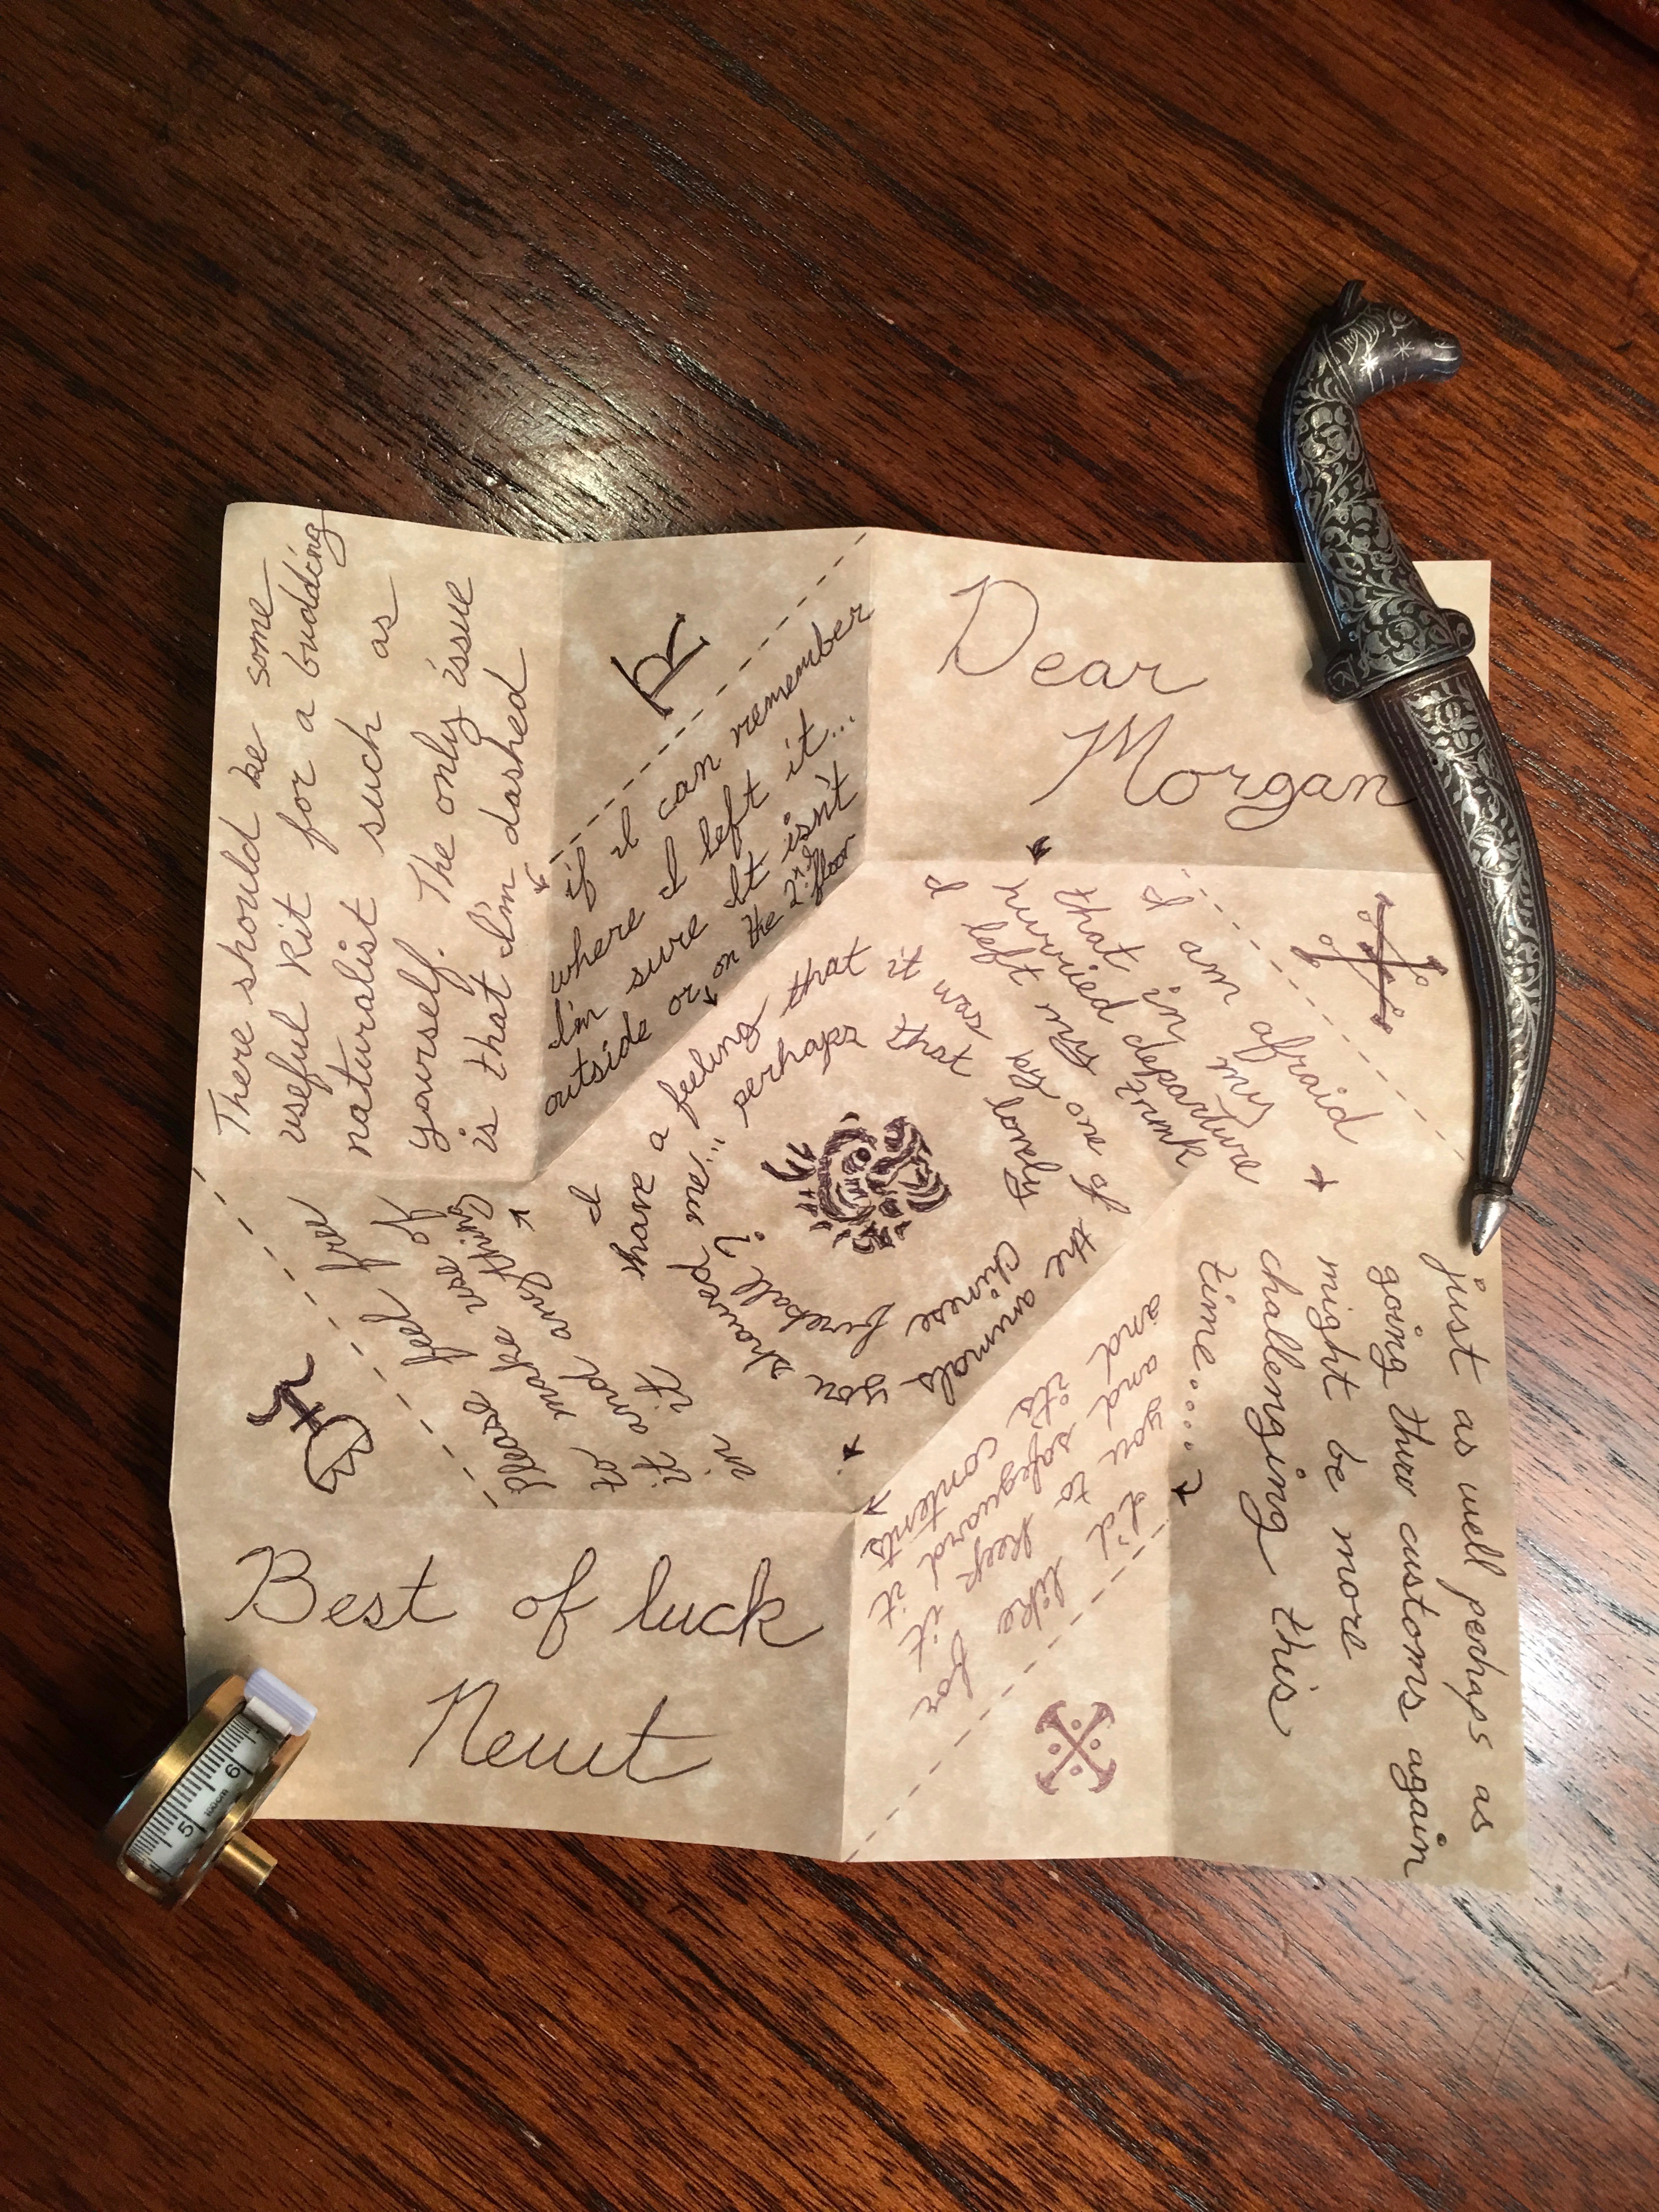 Dear
Morgan
I am afraid
that in my
hurried departure
I left my trunk
just as well perhaps as
going thru customs again
might be more
challenging this
time.....
I'd like for
you to keep it
and safeguard it
and it's contents
Please feel free
to make use of
it and anything
in it
There should be some
useful kit for a budding
naturalist such as
yourself. The only issue
is that I'm dashed
if I can remember
where I left it...
I'm sure it isn't
outside or on the 2nd floor
I have a feeling that
it was one of
the animals
you showed me...
perhaps
that lovely
Chinese fireball?
Best of luck
Newt
5 6
100cm